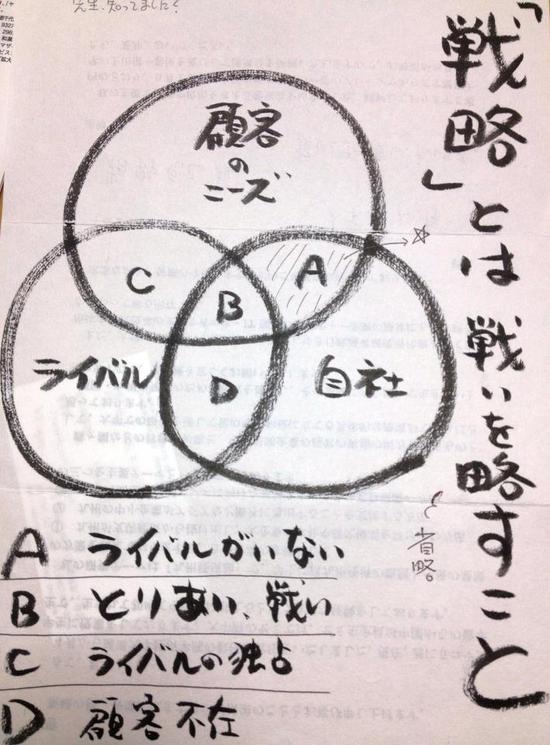 先生、知ってました？
「戦略」とは戦いを略すこと
省略
顧客
の
ニーズ
☆
A
C
B
ライバル
D
自社
A ライバルがいない
B とりあい、戦い
C ライバルの独占
D 顧客不在